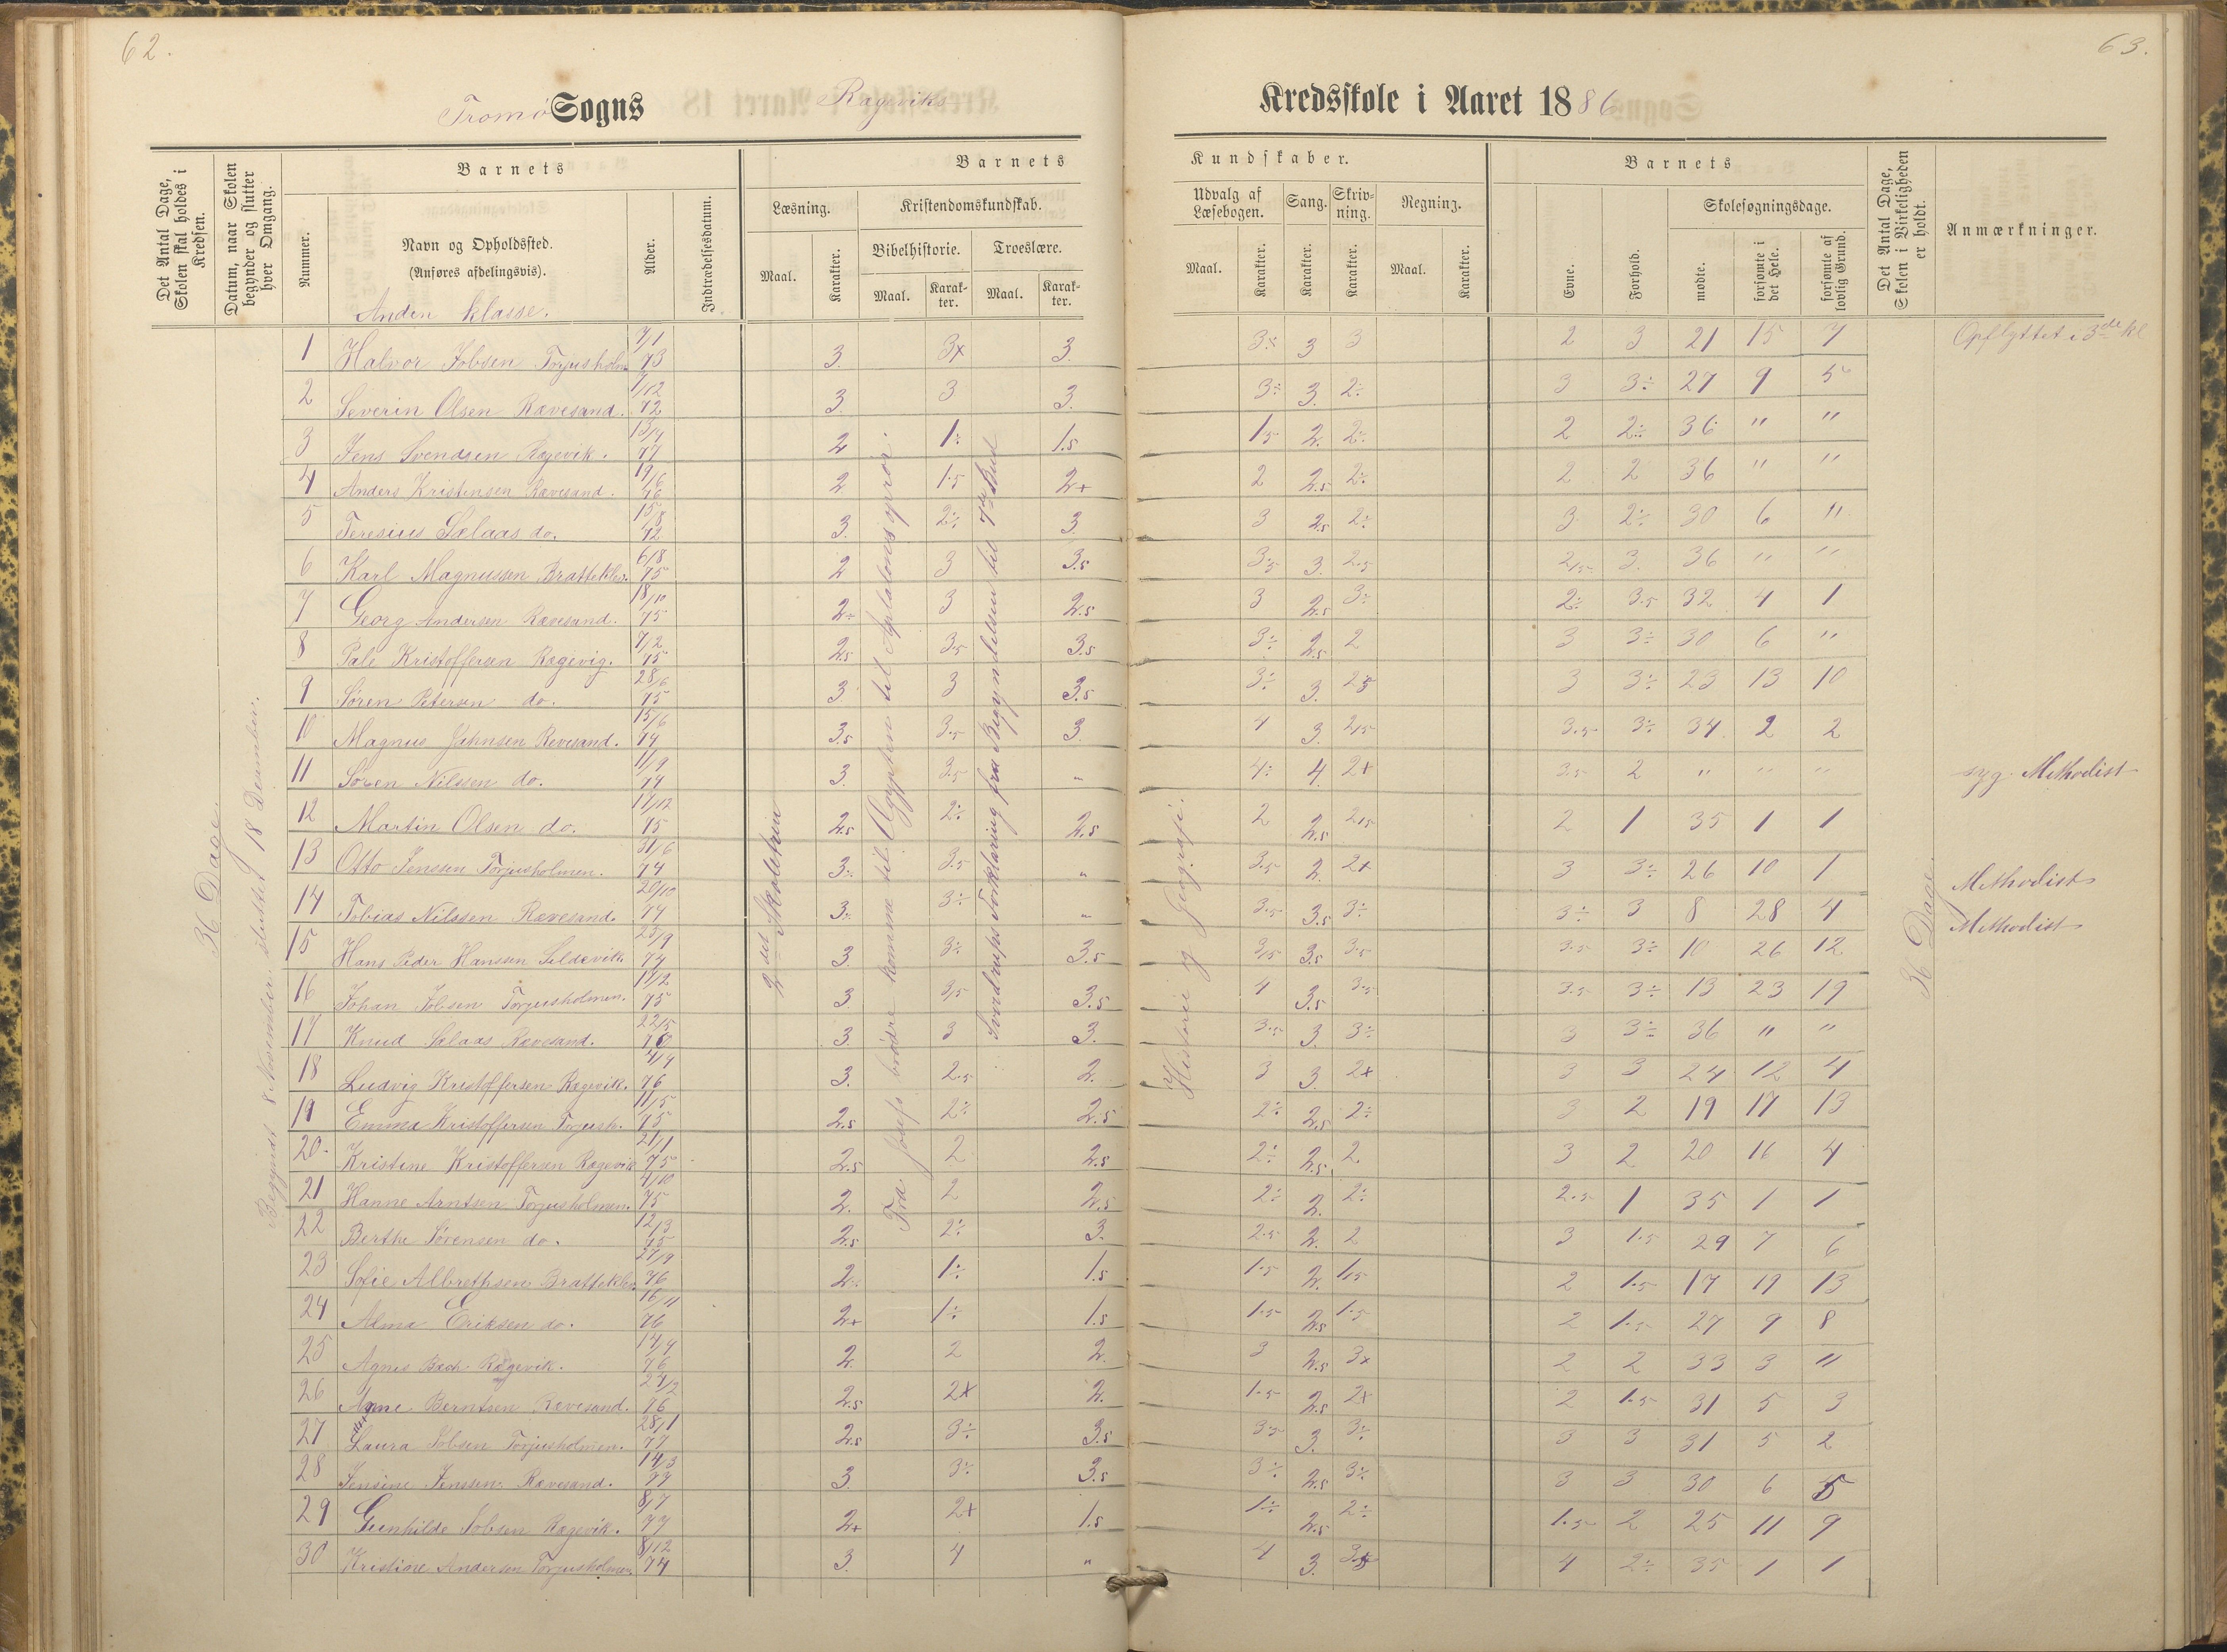 62.
63.
Tromö Sogns Rageviks Kredsskole i Aaret 1886
Det Antal Dage, Skolen skal holdes i Kredsen.
Datum, naar Skolen begynder og slutter hver Omgang.
Nummer.
Barnets
Navn og Opholdssted.
(Anføres afdelingsvis).
Alder.
Indtrædelsesdatum.
Barnets Kundskaber.
Læsning.
Maal.
Karakter.
Kristendomskundskab.
Bibelhistorie.
Maal.
Karakter.
Troeslære.
Maal.
Karakter.
Udvalg af Læsebogen.
Maal.
Karakter.
Sang.
Karakter.
Skrivning.
Karakter.
Regning.
Maal.
Karakter.
Barnets
Evne.
Forhold.
Skolesøgningsdage.
mødte.
forsømte i det Hele.
forsømte af lovlig Grund.
Det Antal Dage, Skolen i Virkeligheden er holdt.
Anmærkninger.
Anden klasse.
36 Dage.
Begyndt 8 November sluttet 18 December.
2det Skoletrin
Fra Josefs brødre komme til Ægypten til Absalons oprør.
Sverdrups Forklaring fra Begyndelsen til 7de Bud
Historie og Geografi.
36 Dage.
1 Halvor Jobsen Torjusholm 7/1 73 3. 3x 3. 3x 3 3 2 3 21 15 7 Opflyttet i 3de kl
2 Severin Olsen Rævesand. 7/12 72 3. 3 3. 3÷ 3. 2÷ 3 3÷ 27 9 5
3 Jens Svendsen Ragevik. 13/7 77 2 1÷ 1.5 1.5 2. 2÷ 2 2÷ 36 " "
4 Anders Kristensen Rævesand. 19/6 76 2 1.5 2+ 2 2.5 2÷ 2 2 36 " "
5 Teresius Sælaas do. 15/8 72 3. 2÷ 3 3 2.5 2÷ 3 2÷ 30 6 "
6 Karl Magnussen Bratteklev. 6/8 75 2 3 3.5 3.5 3. 2.5 2.5 3. 36 " "
7 Georg Andersen Rævesand. 18/10 75 2÷ 3 2.5 3 2.5 3÷ 2÷ 3.5 32 4 1
8 Pale Kristoffersen Ragevig. 7/2 75 2.5 3.5 3.5 3÷ 2.5 2 3 3÷ 30 6 "
9 Søren Petersen do. 28/6 75 3 3 3.5 3÷ 3. 2.5 3 3÷ 23 13 10
10 Magnus Jahnsen Revesand. 15/6 74 3.5 3.5 3 4 3. 2.5 3.5 3÷ 34 2 2
11 Søren Nilssen do. 11/9 74 3. 3.5 " 4÷ 4. 2x 3.5 2 " " " syg. Methodist
12 Martin Olsen do. 17/12 75 2.5 2÷ 2.5 2 2.5 2.5 2 1 35 1 1
13 Otto Jenssen Torjusholmen. 31/6 74 3÷ 3.5 " 3.5 2. 2x 3 3÷ 26 10 1 Methodist
14 Tobias Nilssen Rævesand. 20/10 74 3÷ 3÷ " 3.5 3.5 3÷ 3÷ 3 8 28 4 Methodist
15 Hans Peder Hanssen Sildevik. 23/9 74 3. 3÷ 3.5 3.5 3.5 3.5 3.5 3÷ 10 26 12
16 Johan Jobsen Torjusholmen. 11/12 75 3 3.5 3.5 4 3.5 3.5 3.5 3÷ 13 23 19
17 Knud Sælaas Rævesand. 22/5 3. 3 3. 3.5 3. 3÷ 3 3÷ 36 " "
18 Ludvig Kristoffersen Ragevik. 4/4 76 3. 2.5 2. 3 3. 2x 3 3 24 12 4
19 Emma Kristoffersen Torjush. 11/5 75 2.5 2÷ 2.5 2÷ 2.5 2÷ 3 2 19 17 13
20 Kristine Kristoffersen Ragevik 21/1 75 2.5 2 2.5 2÷ 2.5 2. 3 2 20 16 4
21 Hanne Arntsen Torjusholmen. 4/10 75 2. 2 2.5 2÷ 2. 2÷ 2.5 1 35 1 1
22 Berthe Sørensen do. 12/3 75 2.5 2÷ 3. 2.5 2. 2 3 1.5 29 7 6
23 Sofie Albrethsen Bratteklev 27/9 76 2÷ 1÷ 1.5 1.5 2. 1.5 2 1.5 17 19 13
24 Alma Eriksen do. 16/11 76 2+ 1÷ 1.5 1.5 2.5 1.5 2 1.5 27 9 8
25 Agnes Bach Ragevik. 14/9 76 2. 2 2. 3 2.5 3x 2 2 33 3 "
26 Anne Berntsen Revesand. 24/12 76 2.5 2x 2. 1.5 2.5 2x 2 1.5 31 5 3
27 Laura Jobsen Torjusholmen. 28/1 77 2.5 3÷ 3.5 3.5 3. 3÷ 3 3 31 5 2
28 Jensine Jenssen Rævesand. 14/3 77 3. 3÷ 3.5 3÷ 2.5 3÷ 3 3 30 6 5
29 Gunhilde Jobsen Ragevik. 8/7 77 2+ 2+ 1.5 1÷ 2.5 2÷ 1.5 2 25 11 9
30 Kristine Andersen Torjusholmen 8/12 74 3. 4 " 4 3. 4 2÷ 35 1 1